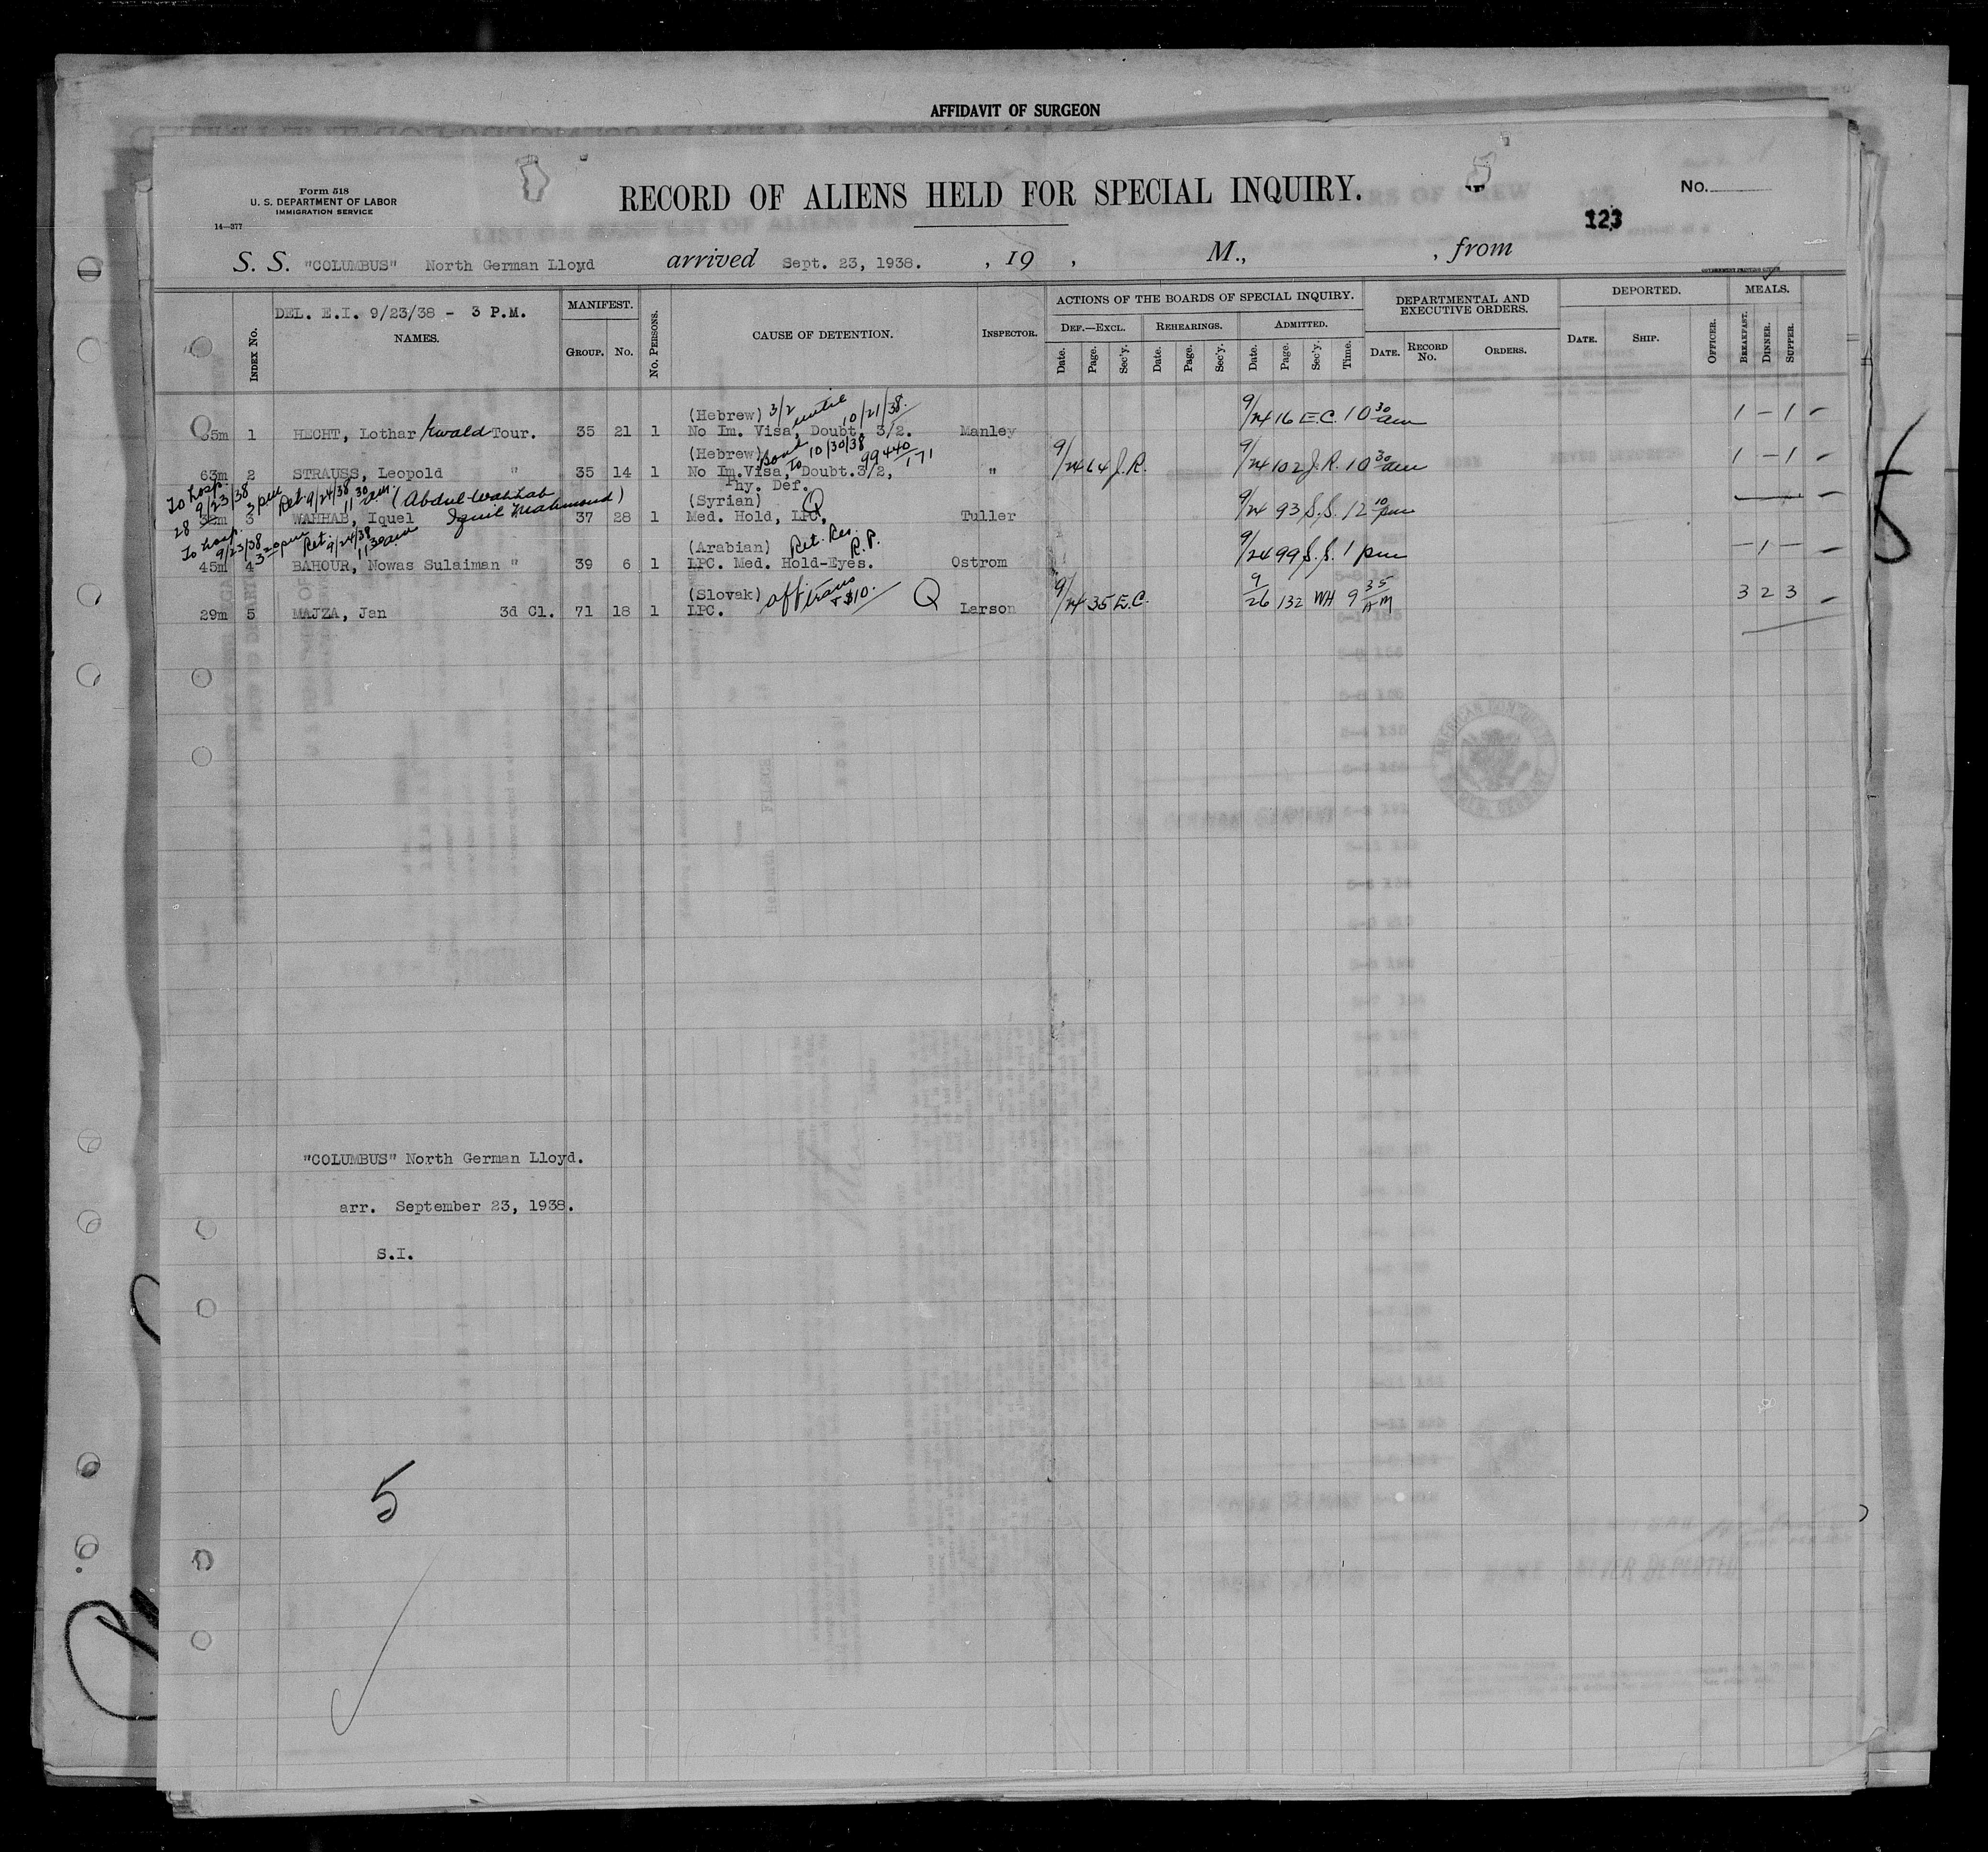 AFFIDAVIT OF SURGEON
Form 518
U. S. DEPARTMENT OF LABOR
IMMIGRATION SERVICE
14—377
RECORD OF ALIENS HELD FOR SPECIAL INQUIRY.
No.
123
S. S. "COLUMBUS" North German Lloyd arrived Sept. 23, 1938. , 19 , M., , from
GOVERNMENT PRINTING OFFICE
INDEX No.
DEL. E.I. 9/23/38 - 3 P.M.
NAMES.
MANIFEST.
GROUP. No.
No. PERSONS.
CAUSE OF DETENTION.
INSPECTOR.
ACTIONS OF THE BOARDS OF SPECIAL INQUIRY.
DEF.—EXCL. REHEARINGS. ADMITTED.
Date. Page. Sec'y. Date. Page. Sec'y. Date. Page. Sec'y. Time.
DEPARTMENTAL AND EXECUTIVE ORDERS.
DATE. RECORD No. ORDERS.
DEPORTED.
DATE. SHIP. OFFICER.
MEALS.
BREAKFAST. DINNER. SUPPER.
(Hebrew) 3/2 until 10/21/38.
35m 1 HECHT, Lothar Ewald Tour. 35 21 1 No Im. Visa, Doubt. 3/2. Manley 9/24 16 E.C. 10 30 am 1 — 1 —
(Hebrew) Bond to 10/30/38 99440/171
63m 2 STRAUSS, Leopold " 35 14 1 No Im.Visa, Doubt.3/2, " 9/24 64 J.R. 9/24 102 J.R. 10 30 am 1 — 1 —
Phy. Def.
To hosp. 9/23/38 3 pm Ret. 9/24/38 11 30 am (Abdul-Wahhab Iquil Mahmoud)
(Syrian) Q
28 38m 3 WAHHAB, Iquel 37 28 1 Med. Hold, LPC, Tuller 9/24 93 S.S. 12 10 pm — —
To hosp. 9/23/38 3 20 pm Ret. 9/24/38 11 30 am
(Arabian) Ret. Res. R.P.
45m 4 BAHOUR, Nowas Sulaiman " 39 6 1 LPC. Med. Hold-Eyes. Ostrom 9/24 99 S.S. 1 pm — 1 — —
(Slovak) aff. trans + $10. Q
29m 5 MAJZA, Jan 3d Cl. 71 18 1 LPC. Larson 9/24 35 E.C. 9/26 132 WH 9 35 AM 3 2 3 —
"COLUMBUS" North German Lloyd.
arr. September 23, 1938.
S.I.
5